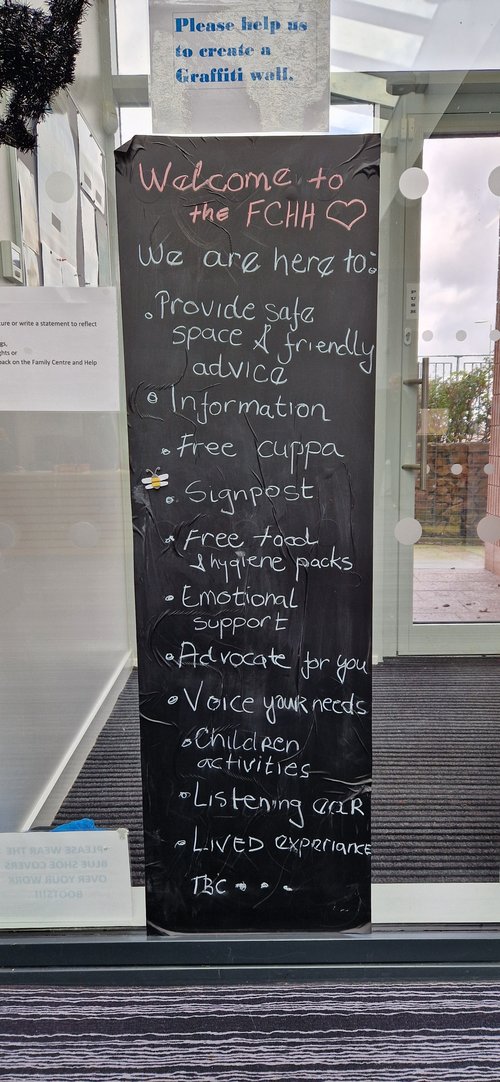 Please help us
to create a
Graffiti wall.
Welcome to
the FCHH
We are here to:
Provide safe
space & friendly
advice
Information
Free cuppa
Signpost
Free food
& hygiene packs
Emotional
support
Advocate for you
Voice your needs
Children
activities
Listening ear
LIVED experiance
TBC...
ure or write a statement to reflect
gs,
ghts or
back on the Family Centre and Help
PUSH
PLEASE WEAR THE
BLUE SHOE COVERS
OVER YOUR WORK
BOOTS!!!